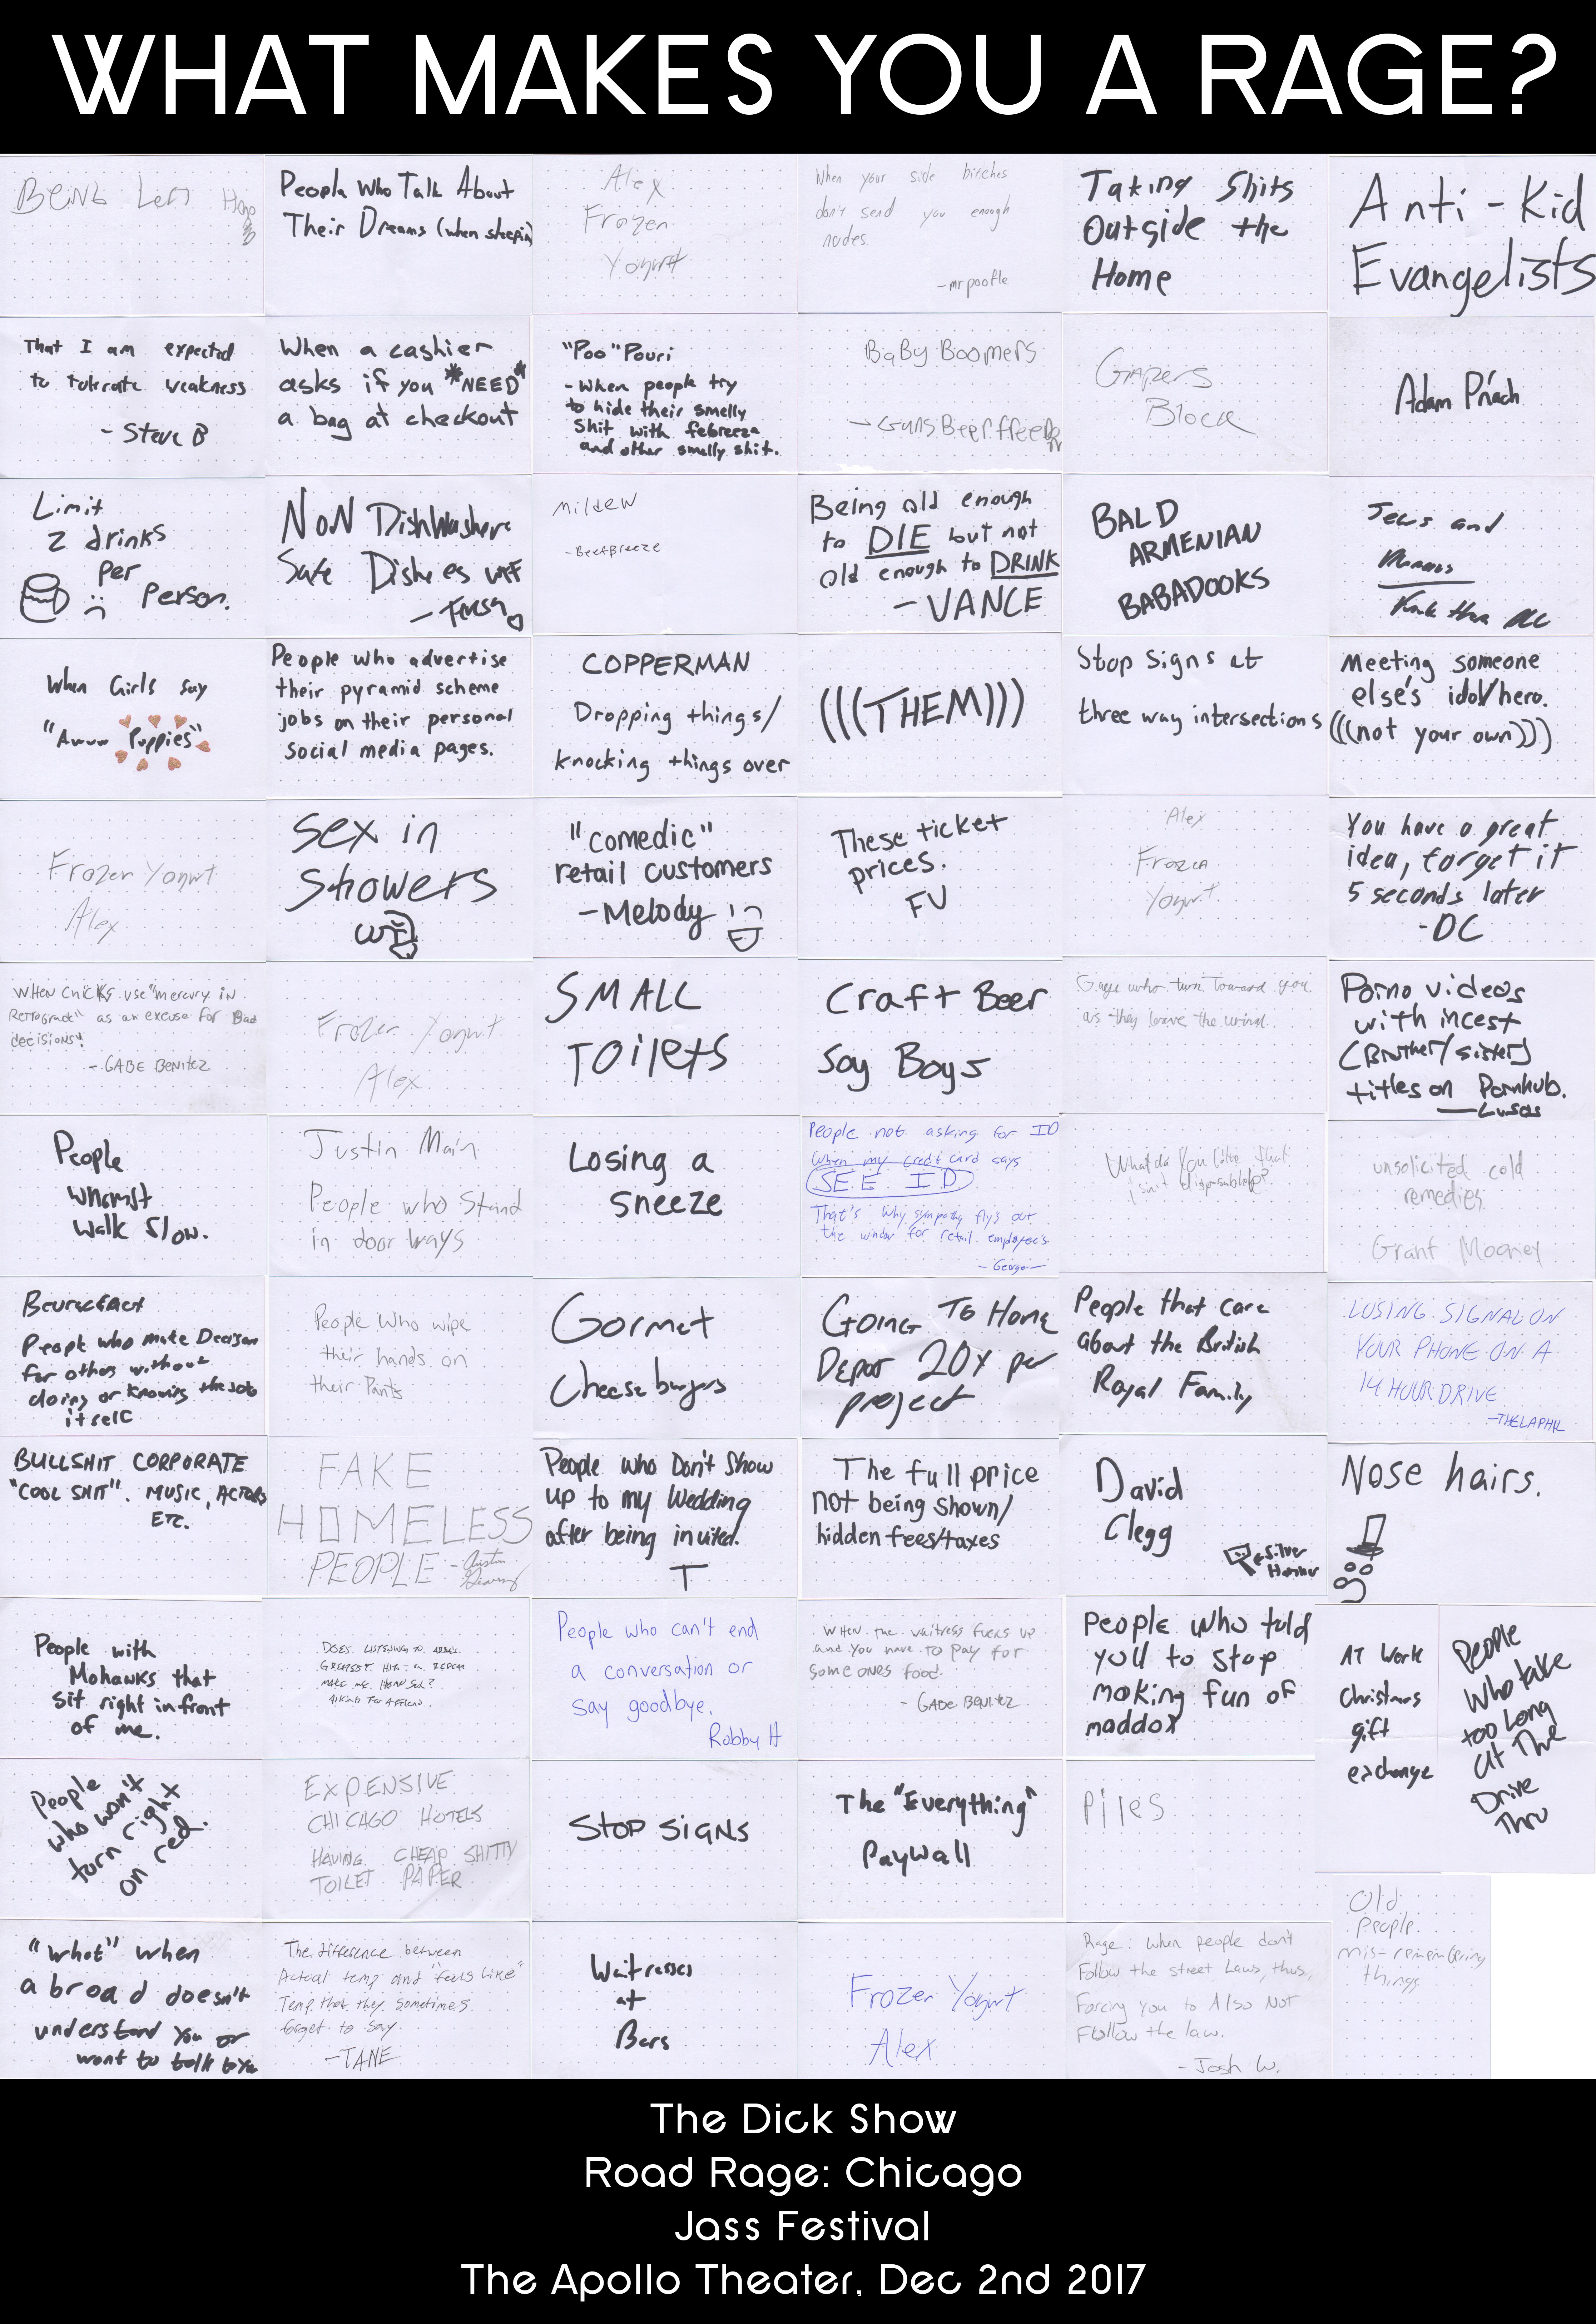 WHAT MAKES YOU A RAGE?
BEING LEFT
People Who Talk About
Their Dreams (when sleepin)
Alex
Frozen
Yogurt
When your side bitches
don't send you enough
nudes.
-mrpootle
Taking Shits
Outside the
Home
Anti-Kid
Evangelists
That I am expected
to tolerate weakness
- Steve B
When a cashier
asks if you *NEED*
a bag at checkout
"Poo" Pouri
- When people try
to hide their smelly
shit with febreeze
and other smelly shit.
BaBy Boomers
Gapers
Block
Adam
Limit
2 drinks
per
person.
NoN DishWasher
Safe Dishes WTF
Mildew
- Beefbreeze
Being old enough
to DIE but not
old enough to DRINK
- VANCE
BALD
ARMENIAN
BABADOOKS
Jews and
When Girls say
"Awww Puppies"
People who advertise
their pyramid scheme
jobs on their personal
social media pages.
COPPERMAN
Dropping things/
knocking things over
(((THEM)))
Stop Signs at
three way intersections
Meeting someone
else's idol/hero.
(((not your own)))
Frozen Yogurt
Alex
Sex in
Showers
"comedic"
retail customers
- Melody
These ticket
prices.
FU
Alex
Frozen
Yogurt
You have a great
idea, forget it
5 seconds later
- DC
WHEN CHICKS use "mercury in
Retrograde" as an excuse for Bad
decisions!
- GABE BENITEZ
Frozen Yogurt
Alex
SMALL
TOILETS
Craft Beer
Soy Boys
Guys who turn Toward you
as they leave the urinal.
Porno videos
with incest
(Brother/sister)
titles on Pornhub.
People
whomst
walk slow.
Justin Main
People who Stand
in door ways
Losing a
sneeze
People not asking for ID
when my credit card says
SEE ID
That's why sympathy fly's out
the window for retail employee's
- George -
What do You Love that
isn't disposable?
unsolicited cold
remedies
Grant Mooney
People who make Decison
for others without
doing or knowing the job
itself
People who wipe
their hands on
their Pants
Gormet
Cheeseburgers
Going To Home
Depot 20x per
project
People that care
about the British
Royal Family
LOSING SIGNAL ON
YOUR PHONE ON A
14 HOUR DRIVE
-THELAPHIL
BULLSHIT CORPORATE
"COOL SHIT". MUSIC, ACTORS
ETC.
FAKE
HOMELESS
PEOPLE - Austin
People who Don't Show
up to my Wedding
after being invited.
T
The full price
not being shown/
hidden fees/taxes
David
Clegg
Silver
Hammer
Nose hairs.
People with
Mohawks that
sit right in front
of me.
DOES LISTENING TO ABBA'S
GREATEST HITS ON REPEAT
MAKE ME
ASKING FOR A FRIEND.
People who can't end
a conversation or
say goodbye.
Robby H
WHEN the waitress fucks up
and you have to pay for
someones food.
- GABE BENITEZ
People who told
you to stop
making fun of
maddox
AT Work
Christmas
gift
exchange
People
who take
too long
at The
Drive
Thru
People
who won't
turn right
on red.
EXPENSIVE
CHICAGO HOTELS
HAVING CHEAP SHITTY
TOILET PAPER
STOP SIGNS
The "Everything"
Paywall
Piles
"what" when
a broad doesn't
understand you or
want to talk to you
The difference between
Actual temp and "feels Like"
Temp that they sometimes
forget to say.
- TANE
Waitresses
at
Bars
Frozen Yogurt
Alex
Rage: When people don't
Follow the street Laws, thus,
Forcing you to Also Not
Follow the law.
- Josh W.
Old
people
mis-remembering
things
The Dick Show
Road Rage: Chicago
Jass Festival
The Apollo Theater, Dec 2nd 2017